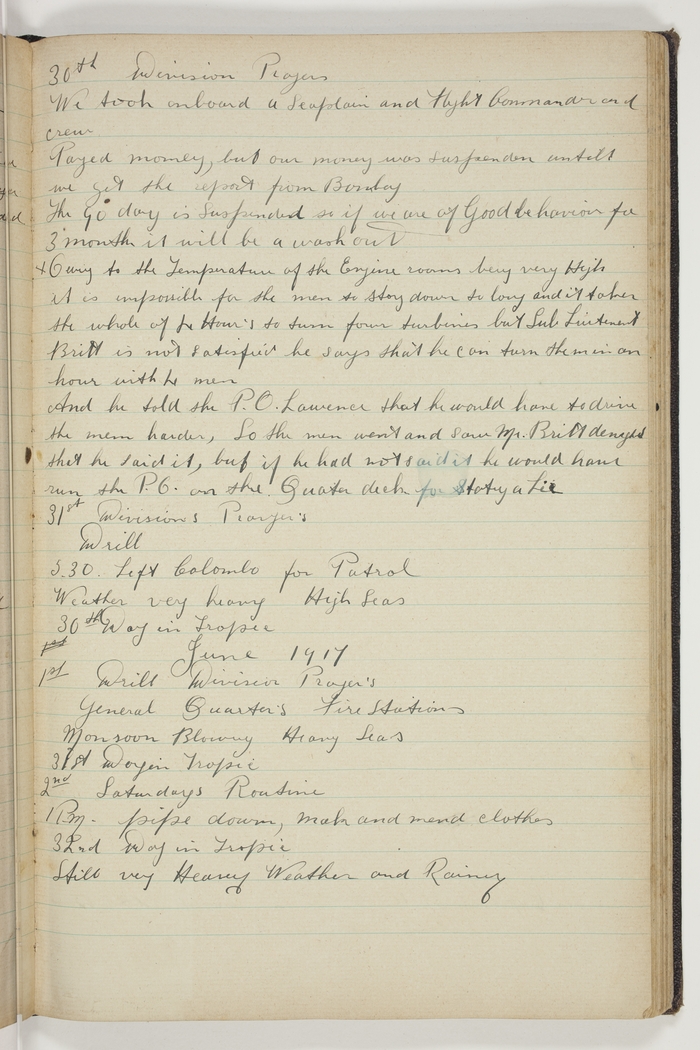 30th Division Prayers
We took onboard a Seaplain and Flight Commander and
crew
Payed money, but our money was suspenden untill
we get the report from Bombay
the 90 day is Suspended so if we are of Good behaviour for
3 months it will be a wash out
+ Owing to the Temperature of the Engine rooms being very High
it is impossible for the men to stay down so long and it takes
the whole of 4 Hour's to turn four turbines but Sub Lieutenent
Britt is not satisfied he says that he can turn them in an
hour with 4 men
And he told the P.O. Lawrence that he would have to drive
the men harder, So the men went and saw Mr. Britt denayed
that he said it, but if he had not said it he would have
run the P.O. on the Quater deck for stateing a Lie
31st Division's Prayer's
Drill
5.30. Left Colombo for Patrol
Weather very heavy High Seas
30th Day in Tropic
June 1917
1st Drill Division Prayer's
General Quarter's Fire Stations
Monsoon Blowing Heavy Seas
31st Day in Tropic
2nd Saturdays Routine
1 P.m. pipe down, make and mend clothes
32nd Day in Tropic
Still very Heavy Weather and Rainey